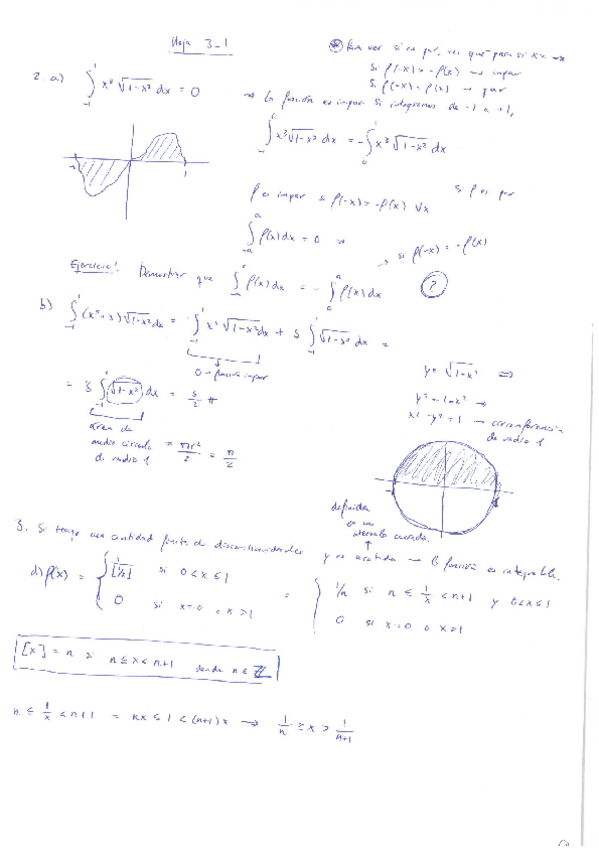 Hoja 3-1
Para ver si es par, ves que para si x
si f(-x) = -f(x) → impar
si f(-x) = f(x) → par
2. a) ∫_{-1}^{1} x³ √(1-x²) dx = 0
⇒ La función es impar si integramos de -1 a +1,
x³ √(1-x²) dx = - x³ √(1-x²) dx
-1 1
f es impar si f(-x) = -f(x) ∀x
si f es par
∫_{-a}^{a} f(x) dx = 0 ⇒
→ si f(-x) = -f(x)
Ejercicio: Demostrar que ∫ f(x) dx = - ∫ f(x) dx
?
b) ∫_{-1}^{1} (x⁵+3) √(1-x²) dx = ∫_{-1}^{1} x⁵ √(1-x²) dx + 5 ∫_{-1}^{1} √(1-x²) dx =
0 → función impar
= 5 ∫_{-1}^{1} √(1-x²) dx = 5/2 π
área de
medio círculo = πr²/2 = π/2
de radio 1
y = √(1-x²) ⇒
y² = 1-x² ⇒
→ circunferencia
de radio 1
definida
en un
intervalo cerrado.
3. Si tengo una cantidad finita de discontinuidades y es acotada → la función es integrable.
d) f(x) = { 1/[1/x] si 0<x≤1 = { 1/n si n ≤ 1/x < n+1 y 0<x≤1
0 si x=0 o x>1 0 si x=0 o x>1
[x] = n si n ≤ x < n+1 donde n ∈ ℤ
n ≤ 1/x < n+1 = nx ≤ 1 < (n+1)x → 1/n ≥ x > 1/(n+1)